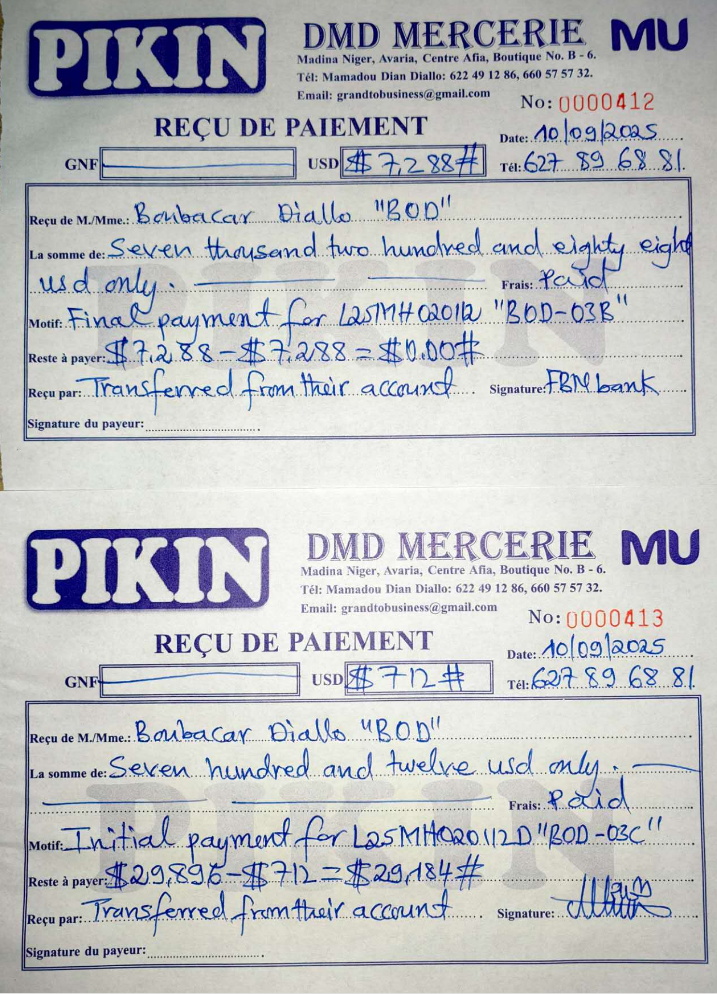 PIKIN
DMD MERCERIE MU
Madina Niger, Avaria, Centre Afia, Boutique No. B - 6.
Tél: Mamadou Dian Diallo: 622 49 12 86, 660 57 57 32.
Email: grandtobusiness@gmail.com
No: 0000412
REÇU DE PAIEMENT
Date: 10/09/2025
GNF USD $ 7,288# Tél: 627 89 68 81
Reçu de M./Mme.: Boubacar Diallo "BOD"
La somme de: Seven thousand two hundred and eighty eight
usd only. Frais: Paid
Motif: Final payment for L25MH020112 "BOD-03B"
Reste à payer: $7,288-$7,288=$0.00#
Reçu par: Transferred from their account Signature: FBN bank
Signature du payeur:
PIKIN
PIKIN
DMD MERCERIE MU
Madina Niger, Avaria, Centre Afia, Boutique No. B - 6.
Tél: Mamadou Dian Diallo: 622 49 12 86, 660 57 57 32.
Email: grandtobusiness@gmail.com
No: 0000413
REÇU DE PAIEMENT
Date: 10/09/2025
GNF USD $ 712# Tél: 627 89 68 81
Reçu de M./Mme.: Boubacar Diallo "BOD"
La somme de: Seven hundred and twelve usd only.
Frais: Paid
Motif: Initial payment for L25MH020112D "BOD-03C"
Reste à payer: $29,896-$712=$29,184#
Reçu par: Transferred from their account Signature:
Signature du payeur:
PIKIN